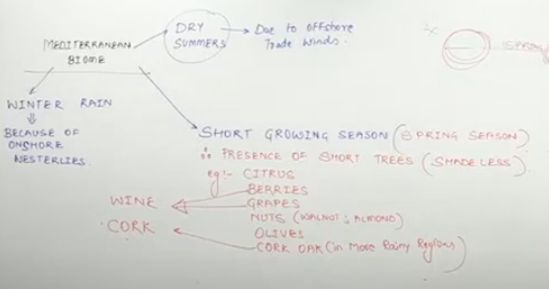 MEDITERRANEAN
BIOME
DRY
SUMMERS
Due to offshore
Trade winds.
WINTER RAIN
BECAUSE OF
ONSHORE
WESTERLIES.
SHORT GROWING SEASON (SPRING SEASON)
∴ PRESENCE OF SHORT TREES (SHADELESS)
eg:- CITRUS
BERRIES
GRAPES
NUTS (WALNUT; ALMOND)
OLIVES
CORK OAK (in More Rainy Regions)
WINE
CORK